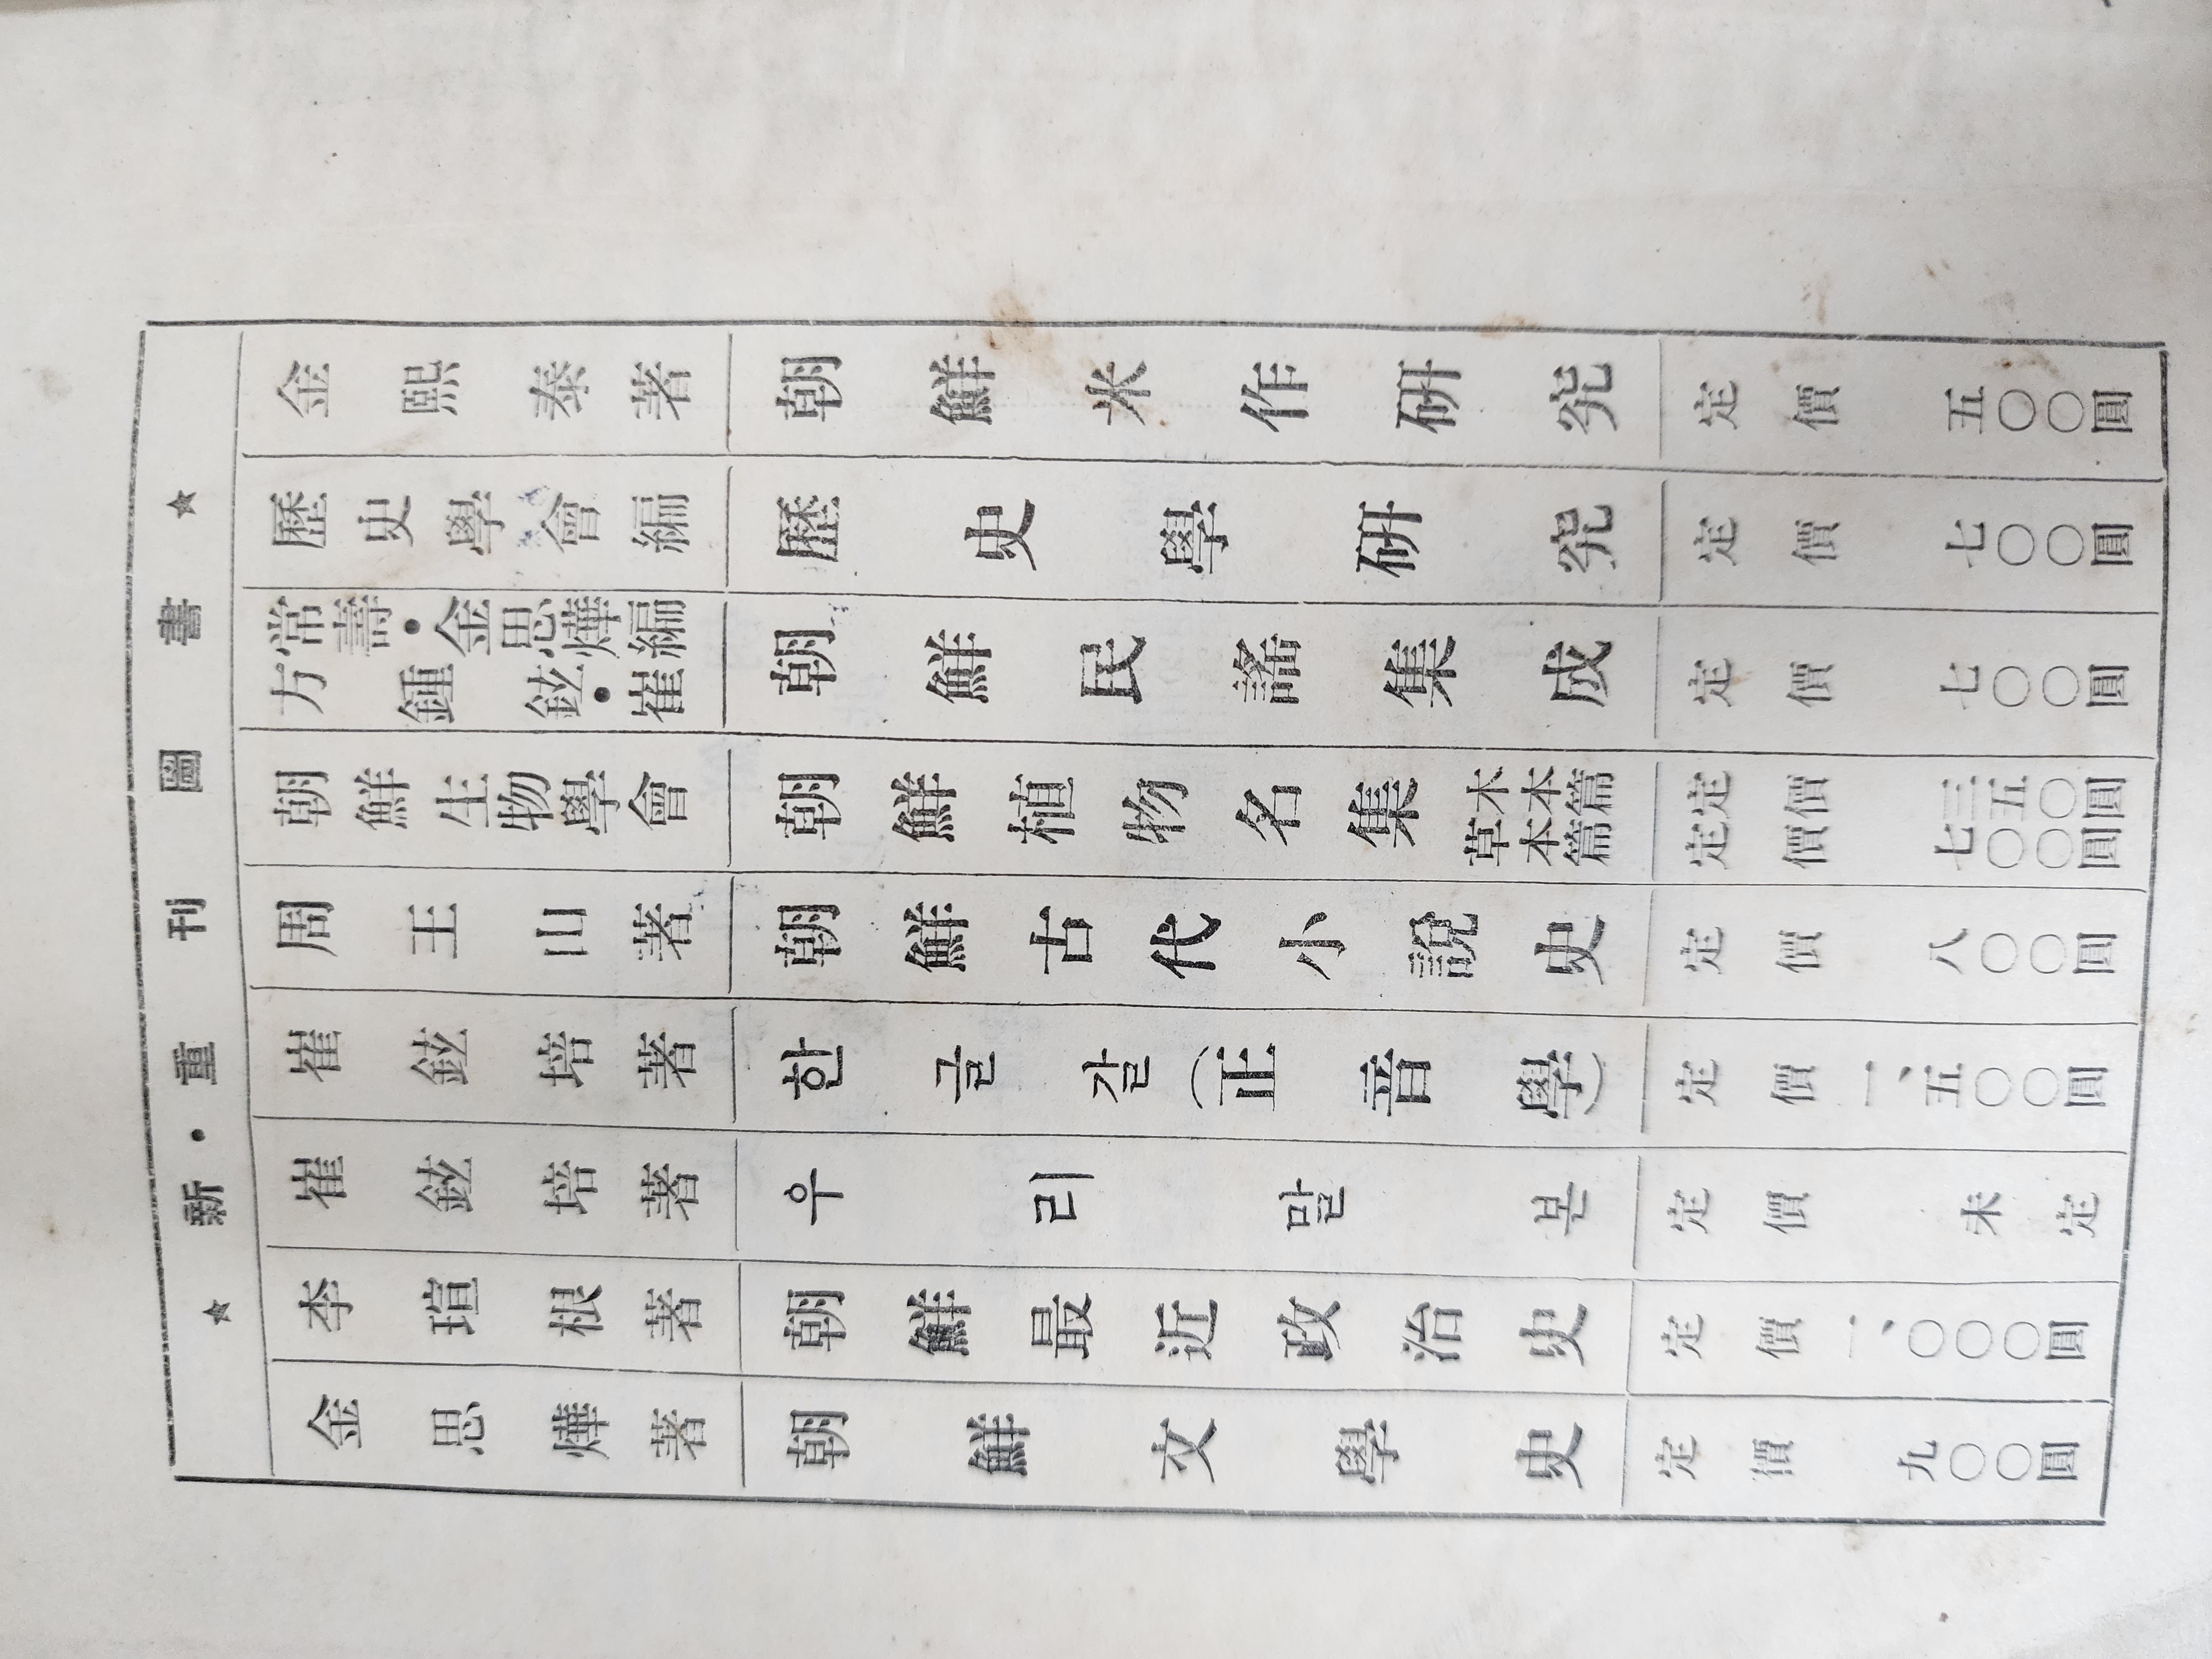 ★ 新・重刊圖書 ★
金思燁著 朝鮮文學史 定價 九〇〇圓
李瑄根著 朝鮮最近政治史 定價 一、〇〇〇圓
崔鉉培著 우리말본 定價 未定
崔鉉培著 한글갈(正音學) 定價 一、五〇〇圓
周王山著 朝鮮古代小說史 定價 八〇〇圓
朝鮮生物學會 朝鮮植物名集 草本篇 定價 七〇〇圓
木本篇 定價 三五〇圓
方鍾鉉・崔
常壽・金思燁編 朝鮮民謠集成 定價 七〇〇圓
歷史學會編 歷史學硏究 定價 七〇〇圓
金熙泰著 朝鮮米作硏究 定價 五〇〇圓